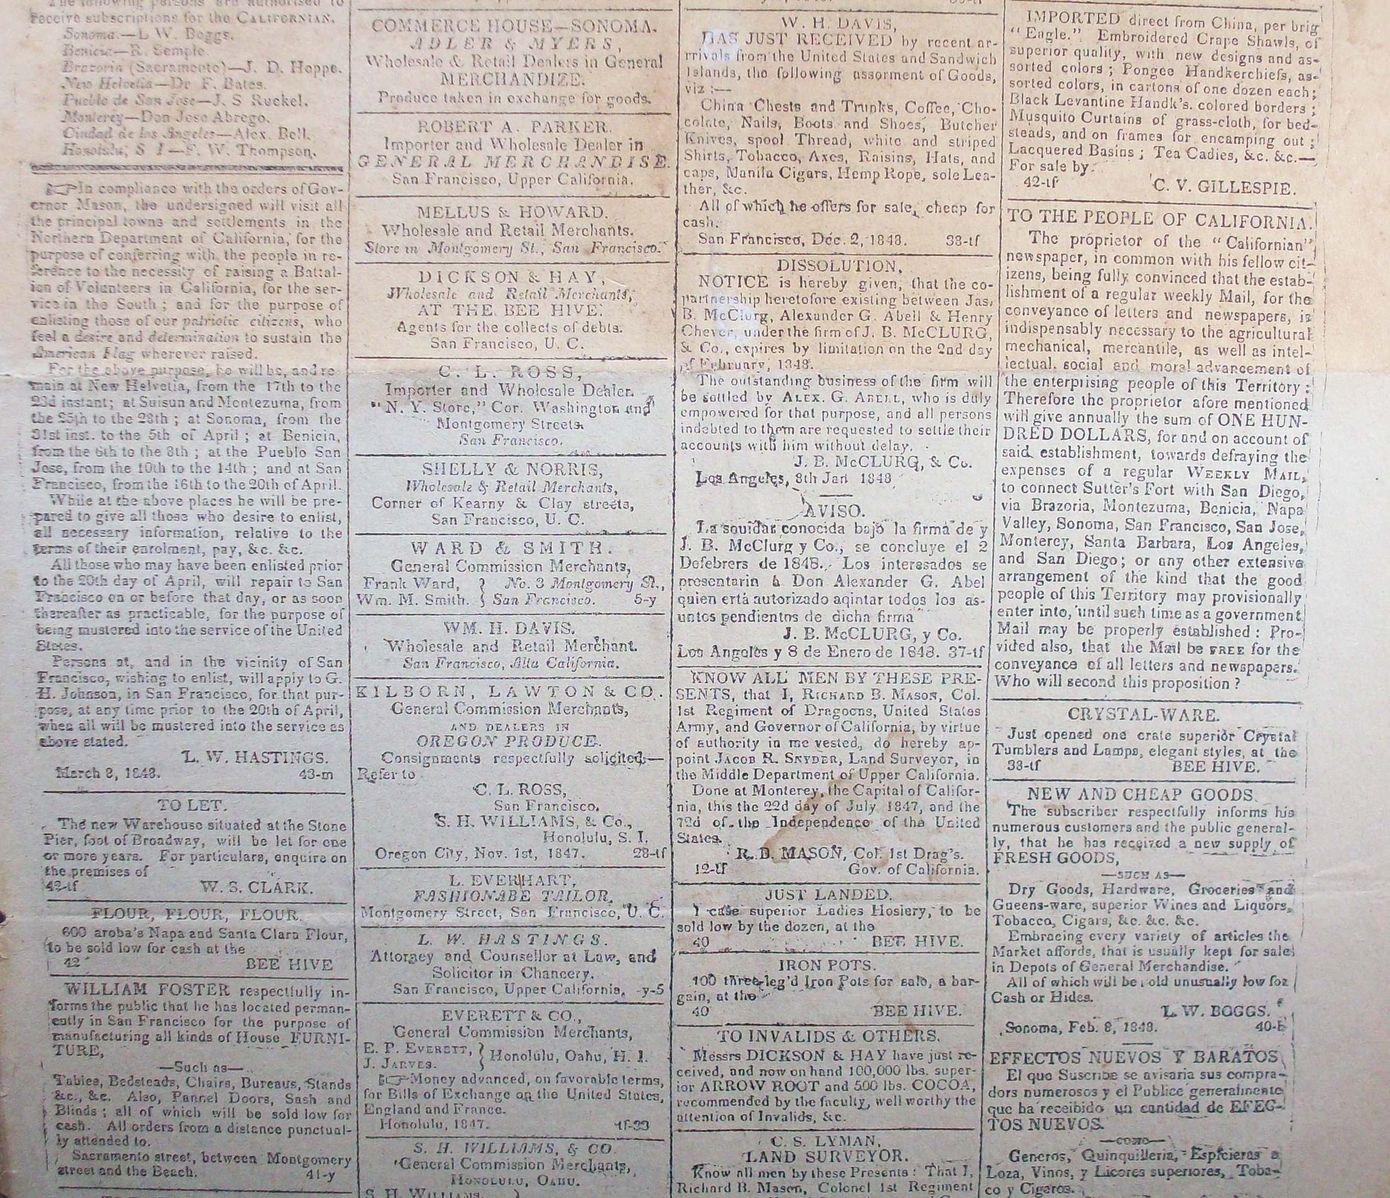 The following persons are authorised to
receive subscriptions for the CALIFORNIAN.
Sonoma.—L W. Boggs.
Benicia—R. Semple.
Brazoria (Sacramento)—J. D. Hoppe.
New Helvetia—Dr F. Bates.
Pueblo de San Jose—J. S Ruckel.
Monterey—Don Jose Abrego.
Ciudad de los Angeles—Alex. Bell.
Honolulu, S I—F. W. Thompson.
☞In compliance with the orders of Gov-
ernor Mason, the undersigned will visit all
the principal towns and settlements in the
Northern Department of California, for the
purpose of conferring with the people in re-
ference to the necessity of raising a Battal-
ion of Volunteers in California, for the ser-
vice in the South; and for the purpose of
enlisting those of our patriotic citizens, who
feel a desire and determination to sustain the
American Flag wherever raised.
For the above purpose, he will be, and re
main at New Helvetia, from the 17th to the
23d instant; at Suisun and Montezuma, from
the 25th to the 28th; at Sonoma, from the
31st inst. to the 5th of April; at Benicia,
from the 6th to the 8th; at the Pueblo San
Jose, from the 10th to the 14th; and at San
Francisco, from the 16th to the 20th of April.
While at the above places he will be pre-
pared to give all those who desire to enlist,
all necessary information, relative to the
terms of their enrolment, pay, &c. &c.
All those who may have been enlisted prior
to the 20th day of April, will repair to San
Francisco on or before that day, or as soon
thereafter as practicable, for the purpose of
being mustered into the service of the United
States.
Persons at, and in the vicinity of San
Francisco, wishing to enlist, will apply to G.
H. Johnson, in San Francisco, for that pur-
pose, at any time prior to the 20th of April,
when all will be mustered into the service as
above stated.
L. W. HASTINGS.
March 8, 1848. 43-m
TO LET.
The new Warehouse situated at the Stone
Pier, foot of Broadway, will be let for one
or more years. For particulars, enquire on
the premises of
42-tf W. S. CLARK.
FLOUR, FLOUR, FLOUR.
600 aroba's Napa and Santa Clara Flour,
to be sold low for cash at the
42 BEE HIVE
WILLIAM FOSTER respectfully in-
forms the public that he has located perman-
ently in San Francisco for the purpose of
manufacturing all kinds of House FURNI-
TURE,
—Such as—
Tables, Bedsteads, Chairs, Bureaus, Stands
&c., &c. Also, Pannel Doors, Sash and
Blinds; all of which will be sold low for
cash. All orders from a distance punctual-
ly attended to.
Sacramento street, between Montgomery
street and the Beach. 41-y
COMMERCE HOUSE—SONOMA.
ADLER & MYERS,
Wholesale & Retail Dealers in General
MERCHANDIZE.
Produce taken in exchange for goods.
ROBERT A. PARKER.
Importer and Wholesale Dealer in
GENERAL MERCHANDISE.
San Francisco, Upper California.
MELLUS & HOWARD.
Wholesale and Retail Merchants.
Store in Montgomery St., San Francisco.
DICKSON & HAY,
Wholesale and Retail Merchants,
AT THE BEE HIVE.
Agents for the collects of debts.
San Francisco, U. C.
C. L. ROSS,
Importer and Wholesale Dealer.
"N. Y. Store," Cor. Washington and
Montgomery Streets.
San Francisco.
SHELLY & NORRIS,
Wholesale & Retail Merchants,
Corner of Kearny & Clay streets,
San Francisco, U. C.
WARD & SMITH.
General Commission Merchants,
Frank Ward, } No. 3 Montgomery St.,
Wm. M. Smith. } San Francisco. 5-y
WM. H. DAVIS.
Wholesale and Retail Merchant.
San Francisco, Alta California.
KILBORN, LAWTON & CO.
General Commission Merchants,
AND DEALERS IN
OREGON PRODUCE.
Consignments respectfully solicited.—
Refer to
C. L. ROSS,
San Francisco.
S. H. WILLIAMS, & Co.,
Honolulu, S. I.
Oregon City, Nov. 1st, 1847. 28-tf
L. EVERHART,
FASHIONABE TAILOR,
Montgomery Street, San Francisco, U. C.
L. W. HASTINGS.
Attorney and Counsellor at Law, and
Solicitor in Chancery.
San Francisco, Upper California. -y-5
EVERETT & CO.,
General Commission Merchants,
E. P. EVERETT, } Honolulu, Oahu, H. I.
J. JARVES. }
☞Money advanced, on favorable terms,
for Bills of Exchange on the United States,
England and France.
Honolulu, 1847. tf-33
S. H. WILLIAMS, & CO
General Commission Merchants,
HONOLULU, OAHU.
S. H. WILLIAMS,
W. H. DAVIS,
HAS JUST RECEIVED by recent ar-
rrivals from the United States and Sandwich
Islands, the following assorment of Goods,
viz:—
China Chests and Trunks, Coffee, Cho-
colate, Nails, Boots and Shoes, Butcher
Knives, spool Thread, white and striped
Shirts, Tobacco, Axes, Raisins, Hats, and
caps, Manila Cigars, Hemp Rope, sole Lea-
ther, &c.
All of which he offers for sale, cheap for
cash.
San Francisco, Dec. 2, 1848. 38-tf
DISSOLUTION.
NOTICE is hereby given, that the co-
partnership heretofore existing between Jas.
B. McClurg, Alexander G. Abell & Henry
Chever, under the firm of J. B. McCLURG,
& Co., expires by limitation on the 2nd day
of February, 1848.
The outstanding business of the firm will
be settled by ALEX. G. ABELL, who is duly
empowered for that purpose, and all persons
indebted to them are requested to settle their
accounts with him without delay.
J. B. McCLURG, & Co.
Los Angeles, 8th Jan 1848
AVISO.
La souidar conocida bajo la firma de y
J. B. McClurg y Co., se concluye el 2
Defebrers de 1848.. Los interesados se
presentarin à Don Alexander G. Abel
quien ertá autorizado aqintar todos los as-
untos pendientos de dicha firma
J. B. McCLURG, y Co.
Los Angelos y 8 de Enero de 1848. 37-tf
KNOW ALL MEN BY THESE PRE-
SENTS, that I, RICHARD B. MASON, Col.
1st Regiment of Dragoons, United States
Army, and Governor of California, by virtue
of authority in me vested, do hereby ap-
point JACOB R. SNYDER, Land Surveyor, in
the Middle Department of Upper California.
Done at Monterey, the Capital of Califor-
nia, this the 22d day of July 1847, and the
72d of the Independence of the United
States.
R. B. MASON, Col. 1st Drag's.
12-tf Gov. of California.
JUST LANDED.
1 case superior Ladies Hosiery, to be
sold low by the dozen, at the
40 BEE HIVE.
IRON POTS.
100 three-leg'd Iron Pots for sale, a bar-
gain, at the
40 BEE HIVE.
TO INVALIDS & OTHERS.
Messrs DICKSON & HAY have just re-
ceived, and now on hand 100,000 lbs. super-
ior ARROW ROOT and 500 lbs. COCOA,
recommended by the faculty, well worthy the
attention of Invalids, &c.
C. S. LYMAN,
LAND SURVEYOR.
Know all men by these Presents: That I,
Richard B. Mason, Colonel 1st Regiment
IMPORTED direct from China, per brig
"Eagle." Embroidered Crape Shawls, of
superior quality, with new designs and as-
sorted colors; Pongee Handkerchiefs, as-
sorted colors, in cartons of one dozen each;
Black Levantine Handk's. colored borders;
Musquito Curtains of grass-cloth, for bed-
steads, and on frames for encamping out;
Lacquered Basins; Tea Cadies, &c. &c.—
For sale by
42-tf C. V. GILLESPIE.
TO THE PEOPLE OF CALIFORNIA.
The proprietor of the "Californian"
newspaper, in common with his fellow cit-
izens, being fully convinced that the estab-
lishment of a regular weekly Mail, for the
conveyance of letters and newspapers, is
indispensably necessary to the agricultural
mechanical, mercantile, as well as intel-
lectual, social and moral advancement of
the enterprising people of this Territory;
Therefore the proprietor afore mentioned
will give annually the sum of ONE HUN-
DRED DOLLARS, for and on account of
said establishment, towards defraying the
expenses of a regular WEEKLY MAIL,
to connect Sutter's Fort with San Diego,
via Brazoria, Montezuma, Benicia, Napa
Valley, Sonoma, San Francisco, San Jose,
Monterey, Santa Barbara, Los Angeles,
and San Diego; or any other extensive
arrangement of the kind that the good
people of this Territory may provisionally
enter into, until such time as a government
Mail may be properly established: Pro-
vided also, that the Mail be FREE for the
conveyance of all letters and newspapers.
Who will second this proposition?
CRYSTAL-WARE.
Just opened one crate superior Crystal
Tumblers and Lamps, elegant styles, at the
38-tf BEE HIVE.
NEW AND CHEAP GOODS.
The subscriber respectfully informs his
numerous customers and the public general-
ly, that he has received a new supply of
FRESH GOODS,
—SUCH AS—
Dry Goods, Hardware, Groceries and
Queens-ware, superior Wines and Liquors,
Tobacco, Cigars, &c. &c. &c.
Embracing every variety of articles the
Market affords, that is usually kept for sale
in Depots of General Merchandise.
All of which will be sold unusually low for
Cash or Hides.
L. W. BOGGS.
Sonoma, Feb. 8, 1848. 40-
EFFECTOS NUEVOS Y BARATOS
El que Suscribe se avisaria sus compra-
dors numerosos y el Publice generalmente
que ha received un cantidad de EFEC-
TOS NUEVOS.
—COMO—
Generos, Quinquilleria, Espicieras a
Loza, Vinos, y Licores superiores, Toba-
co y Cigaros.